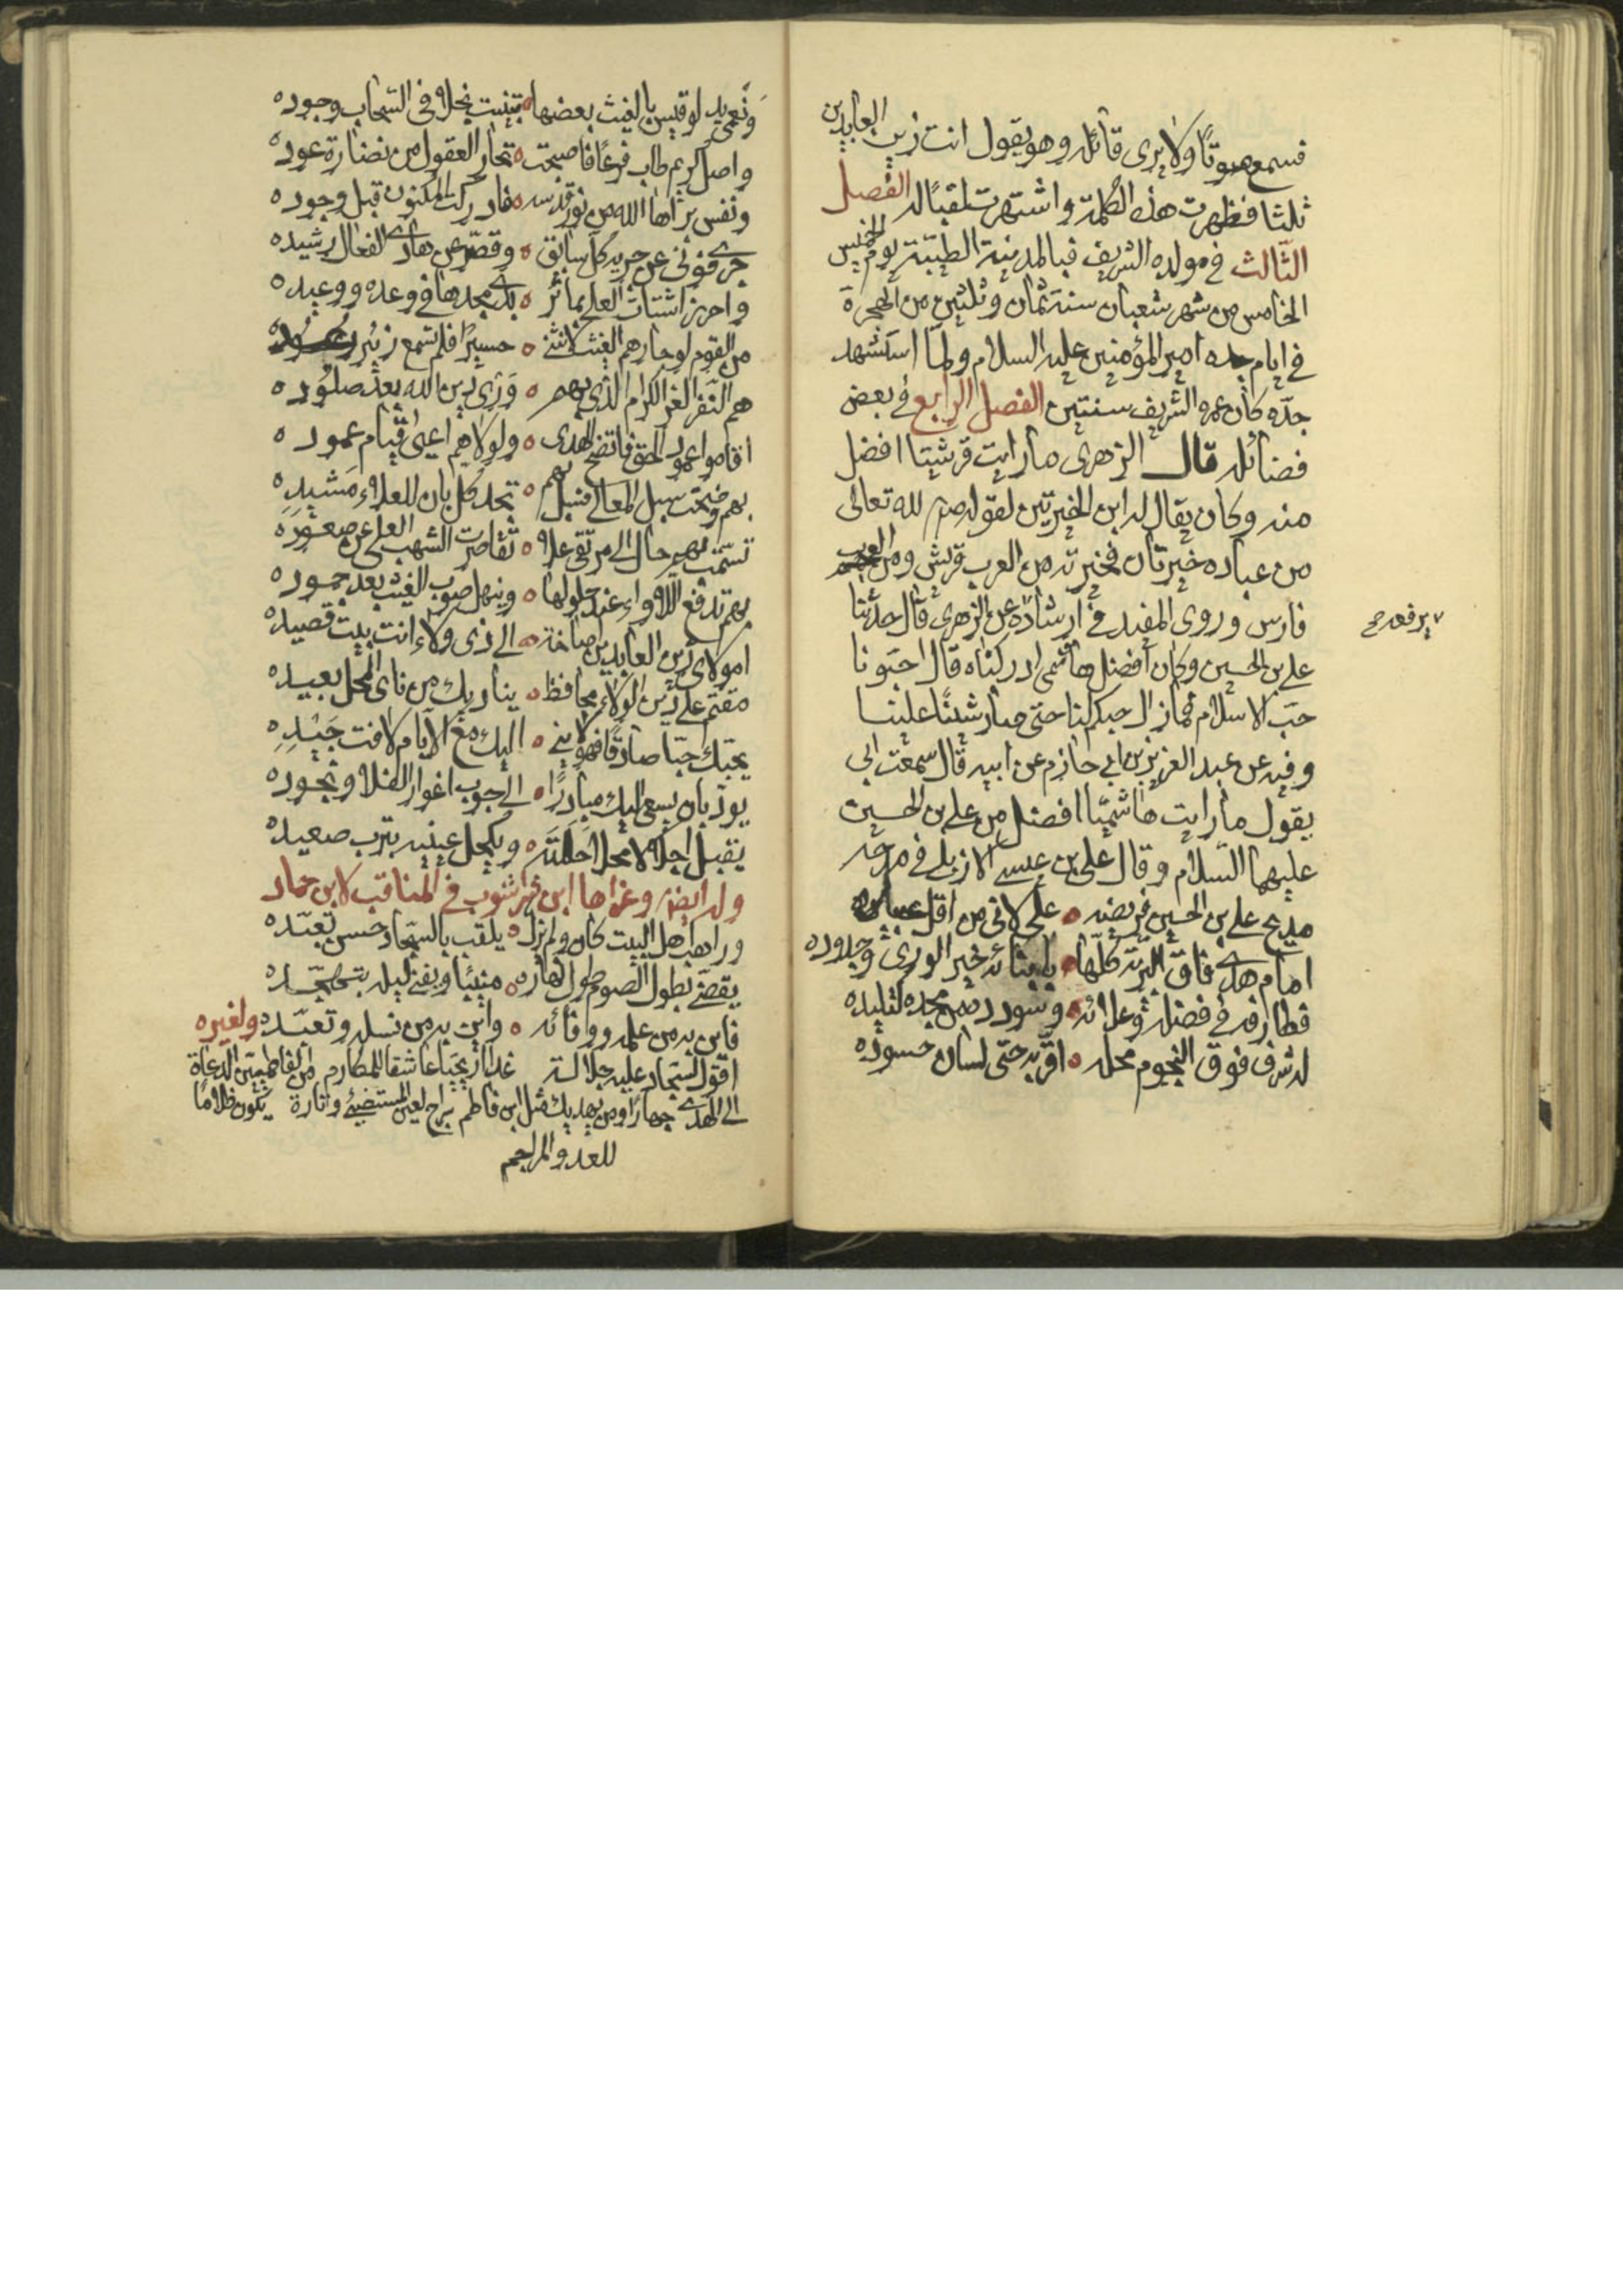 فسمع صوتًا ولا يرى قائله وهو يقول انت زين العابدين
ثلثا فظهرت هذه الكلمة واشتهرت لقبًا له الفصل
الثالث في مولده الشريف فبالمدينة الطيّبة يوم الخميس
الخامس من شهر شعبان سنة ثمان وثلثين من الهجرة
في ايام جده امير المؤمنين عليه السلام ولمّا استشهد
جدّه كان عمره الشريف سنتين الفصل الرابع في بعض
فضائله قال الزهرى ما رايت قرشيّا افضل
منه وكان يقال له ابن الخيرتين لقوله صم لله تعالى
من عباده خيرتان فخيرته من العرب قريش ومن
فارس وروى المفيد في ارشاده عن الزهرى قال حدّثنا
يرفعه صح
علي بن الحسين وكان افضل هاشمى ادركناه قال احبّونا
حبّ الاسلام فما زال حبكم لنا حتى صار شينًا علينا
وفيه عن عبد العزيز بن ابي حازم عن ابيه قال سمعت ابي
يقول ما رايت هاشميّا افضل من علي بن الحسين
عليهما السّلام وقال علي بن عيسى الازبلي في مدحه
مديح علي بن الحسين فريضة ه علي لاني من اقل عبيده
امام هدى فاق البريّة كلّها ه بابنائه خير الورى وجدوده
فطارفه في فضله وعلائه ه وسودده من مجده كتليده
له شرف فوق النجوم محله ه اقرّ به حتى لسان حسوده
ونعمى يد لو قيس بالغيث بعضها ه تبينت بخلا في السحاب وجوده
واصل كريم طاب فرعًا فاصبحت ه تحار العقول من نضارة عوده
ونفس براها الله من نور قدسه ه فادركت المكنون قبل وجوده
جرى فونى عن جريه كل سابق ه وقصّر عن هادى الفعال رشيده
واحرز اشتات العلى بمآثر ه بدى مجدها في وعده ووعيده
من القوم لو جارهم الغيث لانثنى ه حسيرًا فلم تسمع زئير رعوده
هم النّفر الغر الكرام الذي بهم ه ورى دين الله بعد صلوده
اقاموا عمود الحق فاتضح الهدى ه ولولاهم اعيى قيام عموده
بهم وضحت سبل المعالي فسل بهم ه تجد كل بان للعلاء مشيده
تسمّت بهم حال الى مرتقى علا ه تقاصرت الشهب العلى عن صعوده
بهم تدفع اللاواء عند حلولها ه وينهل صوب الغيث بعد جموده
امولاى زين العابدين اصاخة ه الى ذى ولاء انت بيت قصيده
مقيم على دين الولاء محافظ ه يناديك من نائ المحل بعيده
يحبّك حبّا صادقًا فهو لا يني ه اليك مع الايام لافت جيده
يودّ بان يسعى اليك مبادرًا ه الى جوب اغوار الفلا ونجوده
يقبل اجلالا محلا احللته ه ويكحل عينيه بترب صعيده
وله ايضا وعزاها ابن شهر شوب في المناقب لابن حماد
وراهب اهل البيت كان ولم يزل ه يلقب بالسجاد حسن تعبّده
يقضى بطول الصوم طول نهاره ه منيبا ويفنى ليله بتهجّده
فاين به من علمه ووفائه ه واين به من نسله وتعبّده ولغيره
اقول لسجاد عليه جلالة غدا اريحيا عاشقا للمكارم من الفاطميّين الدعاة
الى الهدى جهارًا ومن يهديك مثل ابن فاطم سراج لعين المستضيئ وتارة يكون ظلامًا
للعدو المراجم